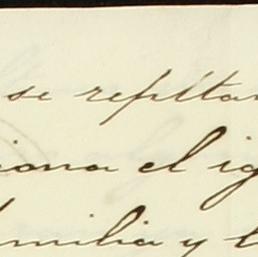 se repitan
iona el ig
familia y t